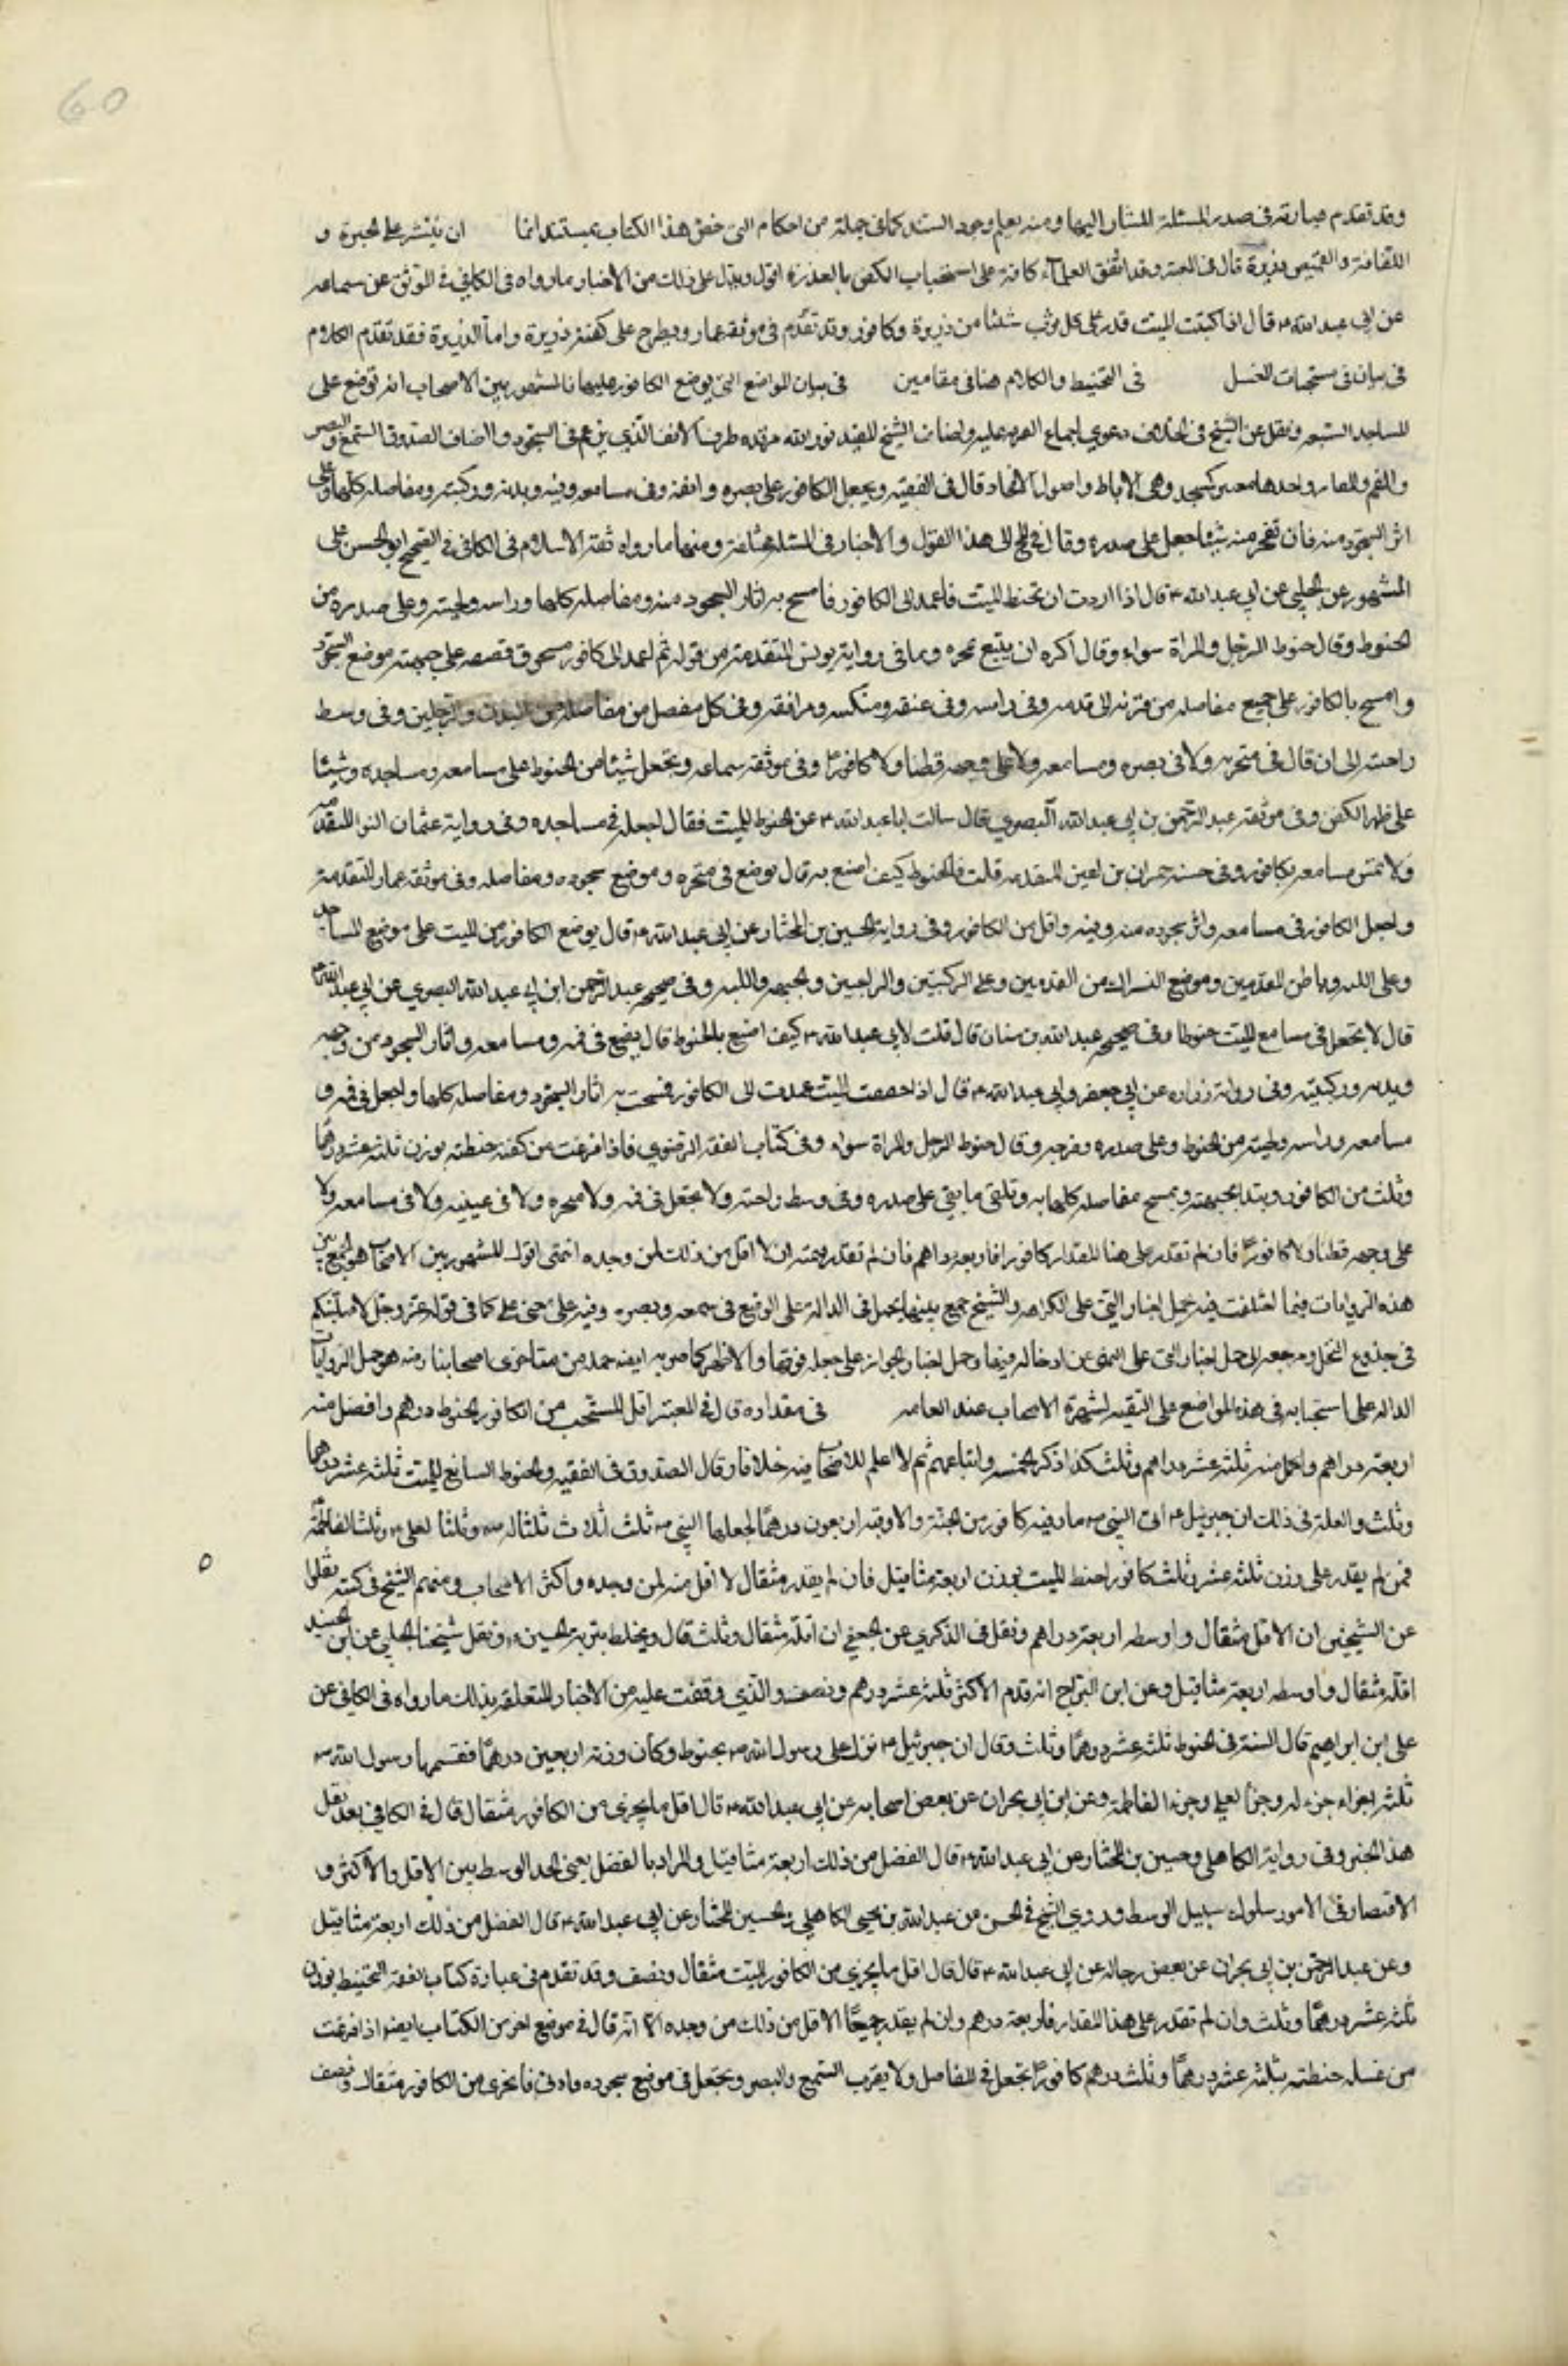 60
وقد تقدم عبارته فى صدر المسئلة المشار اليها ومنه يعلم وجود المستند كما فى جملة من احكام التى خص هذا الكتاب بمستنداتها ان ينثر على الحبرة و
اللفافة والقميص ذريرة قال فى المعتبر وقد اتفق العلماء كافة على استحباب الكفن بالذريرة اقول ويدل على ذلك من الاخبار ما رواه فى الكافي فى الموثق عن سماعه
عن ابى عبد الله ع قال اذا كفنت الميت فذر على كل ثوب شيئا من ذريرة وكافور وقد تقدم فى موثقه عمار ويطرح على كفنه ذريرة واما الذريرة فقد تقدم الكلام
فى بيان فى مستحبات الغسل فى التحنيط والكلام هنا فى مقامين فى بيان المواضع التى يوضع الكافور عليها فالمشهور بين الاصحاب انه توضع على
المساجد السبعه ونقل عن الشيخ فى الخلاف دعوي اجماع الفرقه عليه واضاف الشيخ المفيد نور الله مرقده طرف الانف الذي يرغم فى السجود واضاف الصدوق السمع والبصر
والفم والمغابن وهى الاباط واصول الافخاد قال فى الفقيه ويجعل الكافور على بصره وانفه وفى مسامعه وفيه ويديه وركبتيه ومفاصله كلها وعلى
اثر السجود منه فان بقى منه شيئا جعل على صدره والاخبار فى المسئله مختلفة ومنها ما رواه ثقة الاسلام فى الكافى فى الصحيح او الحسن على
المشهور عن الحلبي عن ابى عبد الله ع قال اذا اردت ان تحنط الميت فاعمد الى الكافور فامسح به اثار السجود منه ومفاصله كلها وراسه ولحيته وعلى صدره من
الحنوط وقال حنوط الرجل والمراة سواء وقال اكره ان يتبع بمجمره وما فى رواية يونس المتقدمة من قوله ثم اعمد الى كافور مسحوق فضعه على جبهته موضع السجود
وامسح بالكافور على جميع مفاصله من قرنه الى قدمه وفى راسه وفى عنقه ومنكبيه ومرافقه وفى كل مفصل من مفاصله من اليدين والرجلين وفى وسط
راحته الى ان قال فى منخريه ولا فى بصره ومسامعه ولا على وجهه قطنا ولا كافورا وفى موثقه سماعه وتجعل شيئا من الحنوط على مسامعه ومساجده وشيئا
على ظهر الكفن وفى موثقه عبد الرحمن بن ابى عبد الله البصري قال سالت ابا عبد الله ع عن الحنوط للميت فقال اجعله فى مساجده وفى رواية عثمان النوا المتقدمه
ولا تمس مسامعه بكافور وفى حسنه حمران بن اعين المتقدمه قلت فالحنوط كيف اصنع به قال يوضع فى منخره وموضع سجوده ومفاصله وفى موثقه عمار المتقدمة
واجعل الكافور فى مسامعه واثر سجوده منه وفيه واقل من الكافور وفى رواية الحسين بن المختار عن ابى عبد الله ع قال يوضع الكافور من الميت على موضع المساجد
وعلى اللبه وباطن القدمين وموضع الشراك من القدمين وعلى الركبتين والراحتين والجبهه واللبه وفى صحيحه عبد الرحمن ابن ابى عبد الله البصري عن ابى عبد الله ع
قال لا تجعل فى مسامع الميت حنوطا وفى صحيحه عبد الله بن سنان قال قلت لابى عبد الله ع كيف اصنع بالحنوط قال يضع فى فمه ومسامعه واثار السجود من وجهه
ويديه وركبتيه وفى رواية زراره عن ابى جعفر وابى عبد الله ع قال اذا جففت الميت عمدت الى الكافور فمسحت به اثار السجود ومفاصله كلها واجعل فى فيه و
مسامعه وراسه ولحيته من الحنوط وعلى صدره وفرجه وقال حنوط الرجل والمراة سواء وفى كتاب الفقه الرضوي فاذا فرغت من كفنه حنطته بوزن ثلثه عشر درهما
وثلث من الكافور وتبدا بجبهته وتمسح مفاصله كلها به وتلقى ما بقى على صدره وفى وسط راحته ولا تجعل فى فمه ولا منخره ولا فى عينيه ولا فى مسامعه ولا
على وجهه قطنا ولا كافورا فان لم تقدر على هذا المقدار كافورا فاربعه دراهم فان لم تقدر فمثقال لا اقل من ذلك لمن وجده انتهى اقول المشهور بين الاصحاب هو الجمع بين
هذه الروايات فيما اختلفت فيه بحمل اخبار النهى على الكراهه والشيخ جمع بينها بحمل فى الدالة على الوضع فى سمعه وبصره وفيه على معنى على كما فى قوله عز وجل لاصلبنكم
فى جذوع النخل ومرجعه الى حمل اخبار النهى على النهى عن ادخاله فيها وحمل اخبار الجواز على جعله فوقها والاظهر كما صرح به ايضه جمله من متاخري اصحابنا رضه هو حمل الروايات
الداله على استحبابه فى هذه المواضع على التقيه لشهرة الاصحاب عند العامه فى مقداره قال فى المعتبر اقل المستحب من الكافور للحنوط درهم وافضل منه
اربعة دراهم واكمل منه ثلثة عشر دراهم وثلث كذا ذكر الخمسه واتباعهم ثم لا اعلم للاصحاب فيه خلافا وقال الصدوق فى الفقيه والحنوط السائغ للميت ثلثه عشر درهما
وثلث والعلة فى ذلك ان جبرئيل ع اتى النبى ص باوقيه كافور من الجنة والاوقيه اربعون درهما فجعلها النبى ص ثلث اثلاث ثلثا له ص وثلثا لعلى ع وثلثا لفاطمة
فمن لم يقدر على وزن ثلثه عشر وثلث كافورا حنط الميت بوزن اربعة مثاقيل فان لم يقدر مثقال لا اقل منه لمن وجده واكثر الاصحاب ومنهم الشيخ فى كتبه نقلوا
عن الشيخين ان الاقل مثقال واوسطه اربعه دراهم ونقل فى الذكري عن الجعفي ان اقله مثقال وثلث قال ويخلط بتربة الحسين ع ونقل شيخنا المجلسي عن ابن الجنيد
اقله مثقال واوسطه اربعة مثاقيل وعن ابن البراج انه قدم الاكثر ثلثه عشر درهم ونصف والذي وقفت عليه من الاخبار المتعلقه بذلك ما رواه فى الكافي عن
على ابن ابراهيم قال السنة فى الحنوط ثلثه عشر درهما وثلث وقال ان جبرئيل ع نزل على رسول الله ص بحنوط وكان وزنه اربعين درهما فقسمها رسول الله ص
ثلثه اجزاء جزء له وجزءا لعلي وجزء الفاطمة وعن ابن ابى نجران عن بعض اصحابه عن ابى عبد الله ع قال اقل ما يجزي من الكافور مثقال قال فى الكافي بعد نقل
هذا الخبر وفى رواية الكاهلى وحسين بن المختار عن ابى عبد الله ع قال الفضل من ذلك اربعة مثاقيل والمراد بالفضل يعنى الحد الوسط بين الاقل والاكثر و
الاقتصار فى الامور سلوك سبيل الوسط وروي الشيخ فى الحسن عن عبد الله بن يحيى الكاهلي والحسين المختار عن ابى عبد الله ع قال الفضل من ذلك اربعة مثاقيل
وعن عبد الرحمن بن ابى نجران عن بعض رجاله عن ابى عبد الله ع قال قال اقل ما يجزي من الكافور للميت مثقال ونصف وقد تقدم فى عبارة كتاب الفقه التحنيط بوزن
ثلثه عشر درهما وثلث وان لم تقدر على هذا المقدار فاربعه درهم وان لم يقدر الاقل من ذلك من وجده الا انه قال فى موضع اخر من الكتاب ايضا اذا فرغت
من غسله حنطته بثلثه عشر درهما وثلث درهم كافورا تجعل فى المفاصل ولا يقرب السمع والبصر وتجعل فى موضع سجوده وادنى ما يجزي من الكافور مثقال ونصف